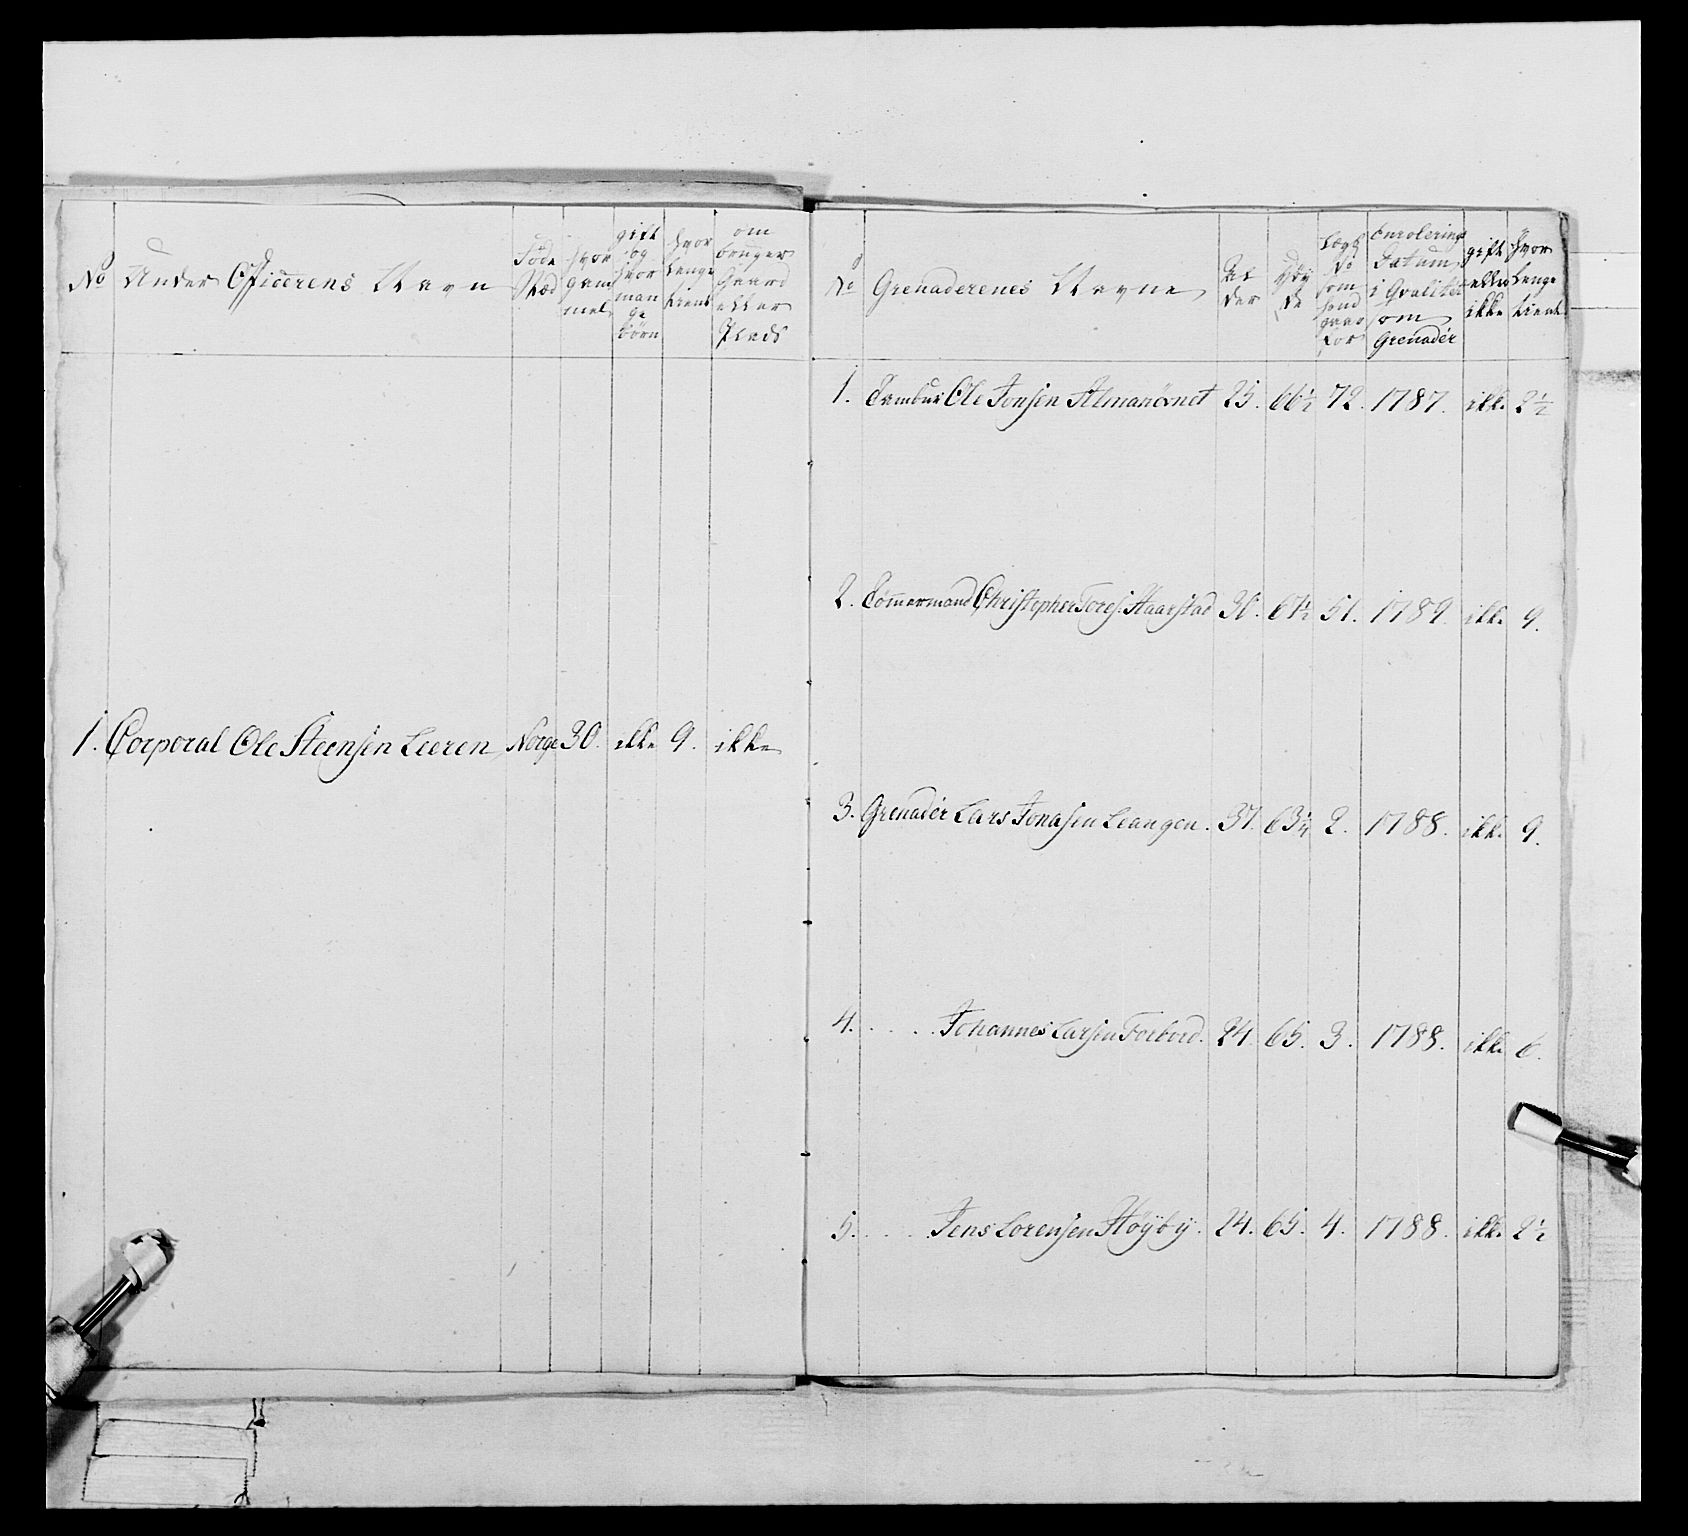 No Under Officerens Navn
Føde Stæd
hvor gammel
gift og hvor mange børn
hvor lenge tient
om bruger Gaard eller Plads
1. Corporal Ole Steensen Leeren Norge 30. ikke 9. ikke
No Grenaderenes Navne
Alder
Lægd No som hand giør for
Enrolering Datum i Qvalitet som Grenadér
gift eller ikke
hvor lenge tient
1. Tambur Ole Jonsen 25. 66½ 72. 1787. ikke 2½
2. Tømermand Christopher Tores. Haarstad 30. 67½ 51. 1789. ikke 9.
3. Grenadér Lars Jonasen Leangen. 37. 63¼ 2. 1788. ikke 9.
4. . . . Johannes Larsen Forbord. 24. 65. 3. 1788. ikke 6.
5. . . . Jens Lorensen Høÿbÿ. 24. 65. 4. 1788. ikke 2½